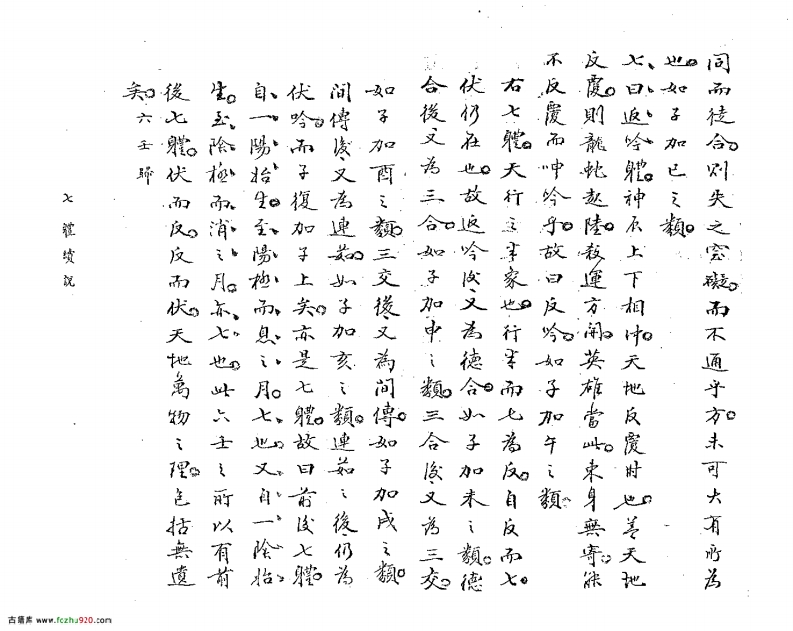 同而徒合。则失之窒礙。而不通乎方。未可大有所為
也。如子加巳之類。
七曰返吟體。神辰上下相冲。天地反覆时也。盖天地
反覆。則龍蛇起陸。殺運方開。英雄當此。束身無寄。能
不反覆而呻吟乎。故曰反吟。如子加午之類。
右七體。天行之半家也。行半而七為反。自反而七。
伏仍在也。故返吟後又為德合。如子加未之類。德
合後又為三合。如子加申之類。三合後又為三交。
如子加酉之類。三交後又為间傳。如子加戌之類。
间傳後又為連茹。如子加亥之類。連茹之後仍為
伏吟。而子復加子上矣。亦是七體。故曰前後七體。
自一陽始生。至陽極而息之月。七也。又自一陰始
生。至陰極而消之月。亦七也。此六壬之所以有前
後七體。伏而反。反而伏。天地萬物之理。包括無遺
矣。六壬歸
七體總説
古籍库 www.fozhu920.com